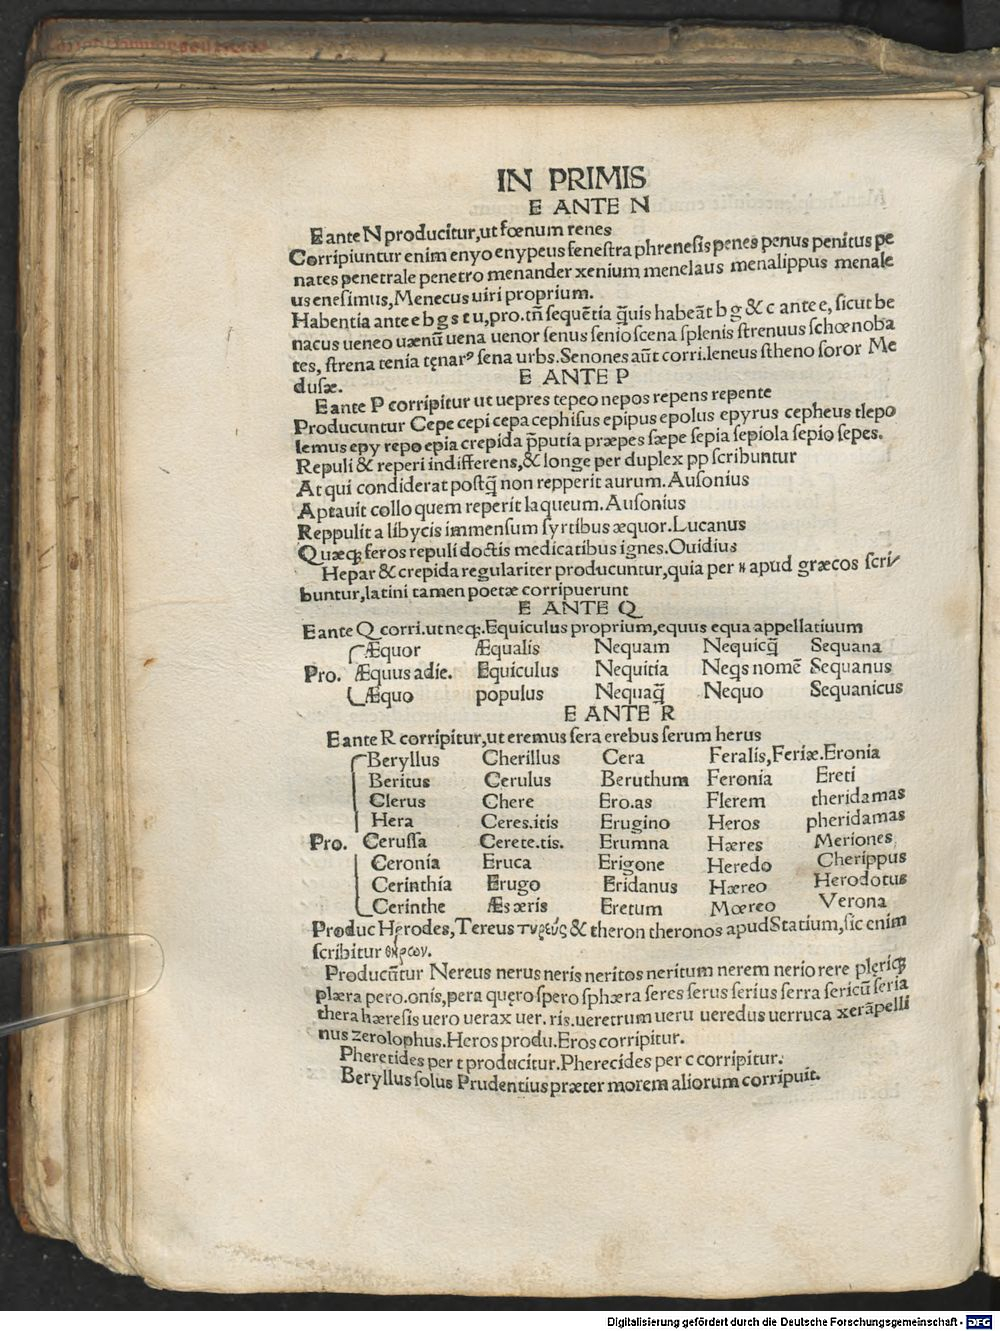 IN PRIMIS
E ANTE N
E ante N producitur, ut fœnum renes
Corripiuntur enim enyo enypeus fenestra phrenesis penes penus penitus pe
nates penetrale penetro menander xenium menelaus menalippus menale
us enesimus, Menecus uiri proprium.
Habentia ante e b g s t u, pro. tñ sequẽtia q̃uis habeãt b g & c ante e, sicut be
nacus ueneo uænũ uena uenor senus senio scena splenis strenuus schœnoba
tes, strena tenia tęnarꝰ sena urbs. Senones aũt corri. leneus stheno soror Me
dusæ.
E ANTE P
E ante P corripitur ut uepres tepeo nepos repens repente
Producuntur Cepe cepi cepa cephisus epipus epolus epyrus cepheus tlepo
lemus epy repo epia crepida p̃putia præpes sæpe sepia sepiola sepio sepes.
Repuli & reperi indifferens, & longe per duplex pp scribuntur
At qui condiderat postq̃ non repperit aurum. Ausonius
Aptauit collo quem reperit laqueum. Ausonius
Reppulit a libycis immensum syrtibus æquor. Lucanus
Quæqꝫ feros repuli doctis medicatibus ignes. Ouidius
Hepar & crepida regulariter producuntur, quia per η apud græcos scri-
buntur, latini tamen poetæ corripuerunt
E ANTE Q
E ante Q corri. ut neqꝫ. Equiculus proprium, equus equa appellatiuum
Æquor Æqualis Nequam Nequicq̃ Sequana
Pro. Æquus adie. Equiculus Nequitia Neqs nomẽ Sequanus
Æquo populus Nequaq̃ Nequo Sequanicus
E ANTE R
E ante R corripitur, ut eremus fera erebus serum herus
Beryllus Cherillus Cera Feralis, Feriæ. Eronia
Beritus Cerulus Beruthum Feronia Ereti
Clerus Chere Ero.as Flerem theridamas
Hera Ceres.itis Erugino Heros pheridamas
Pro. Cerussa Cerete.tis. Erumna Hæres Meriones
Ceronia Eruca Erigone Heredo Cherippus
Cerinthia Erugo Eridanus Hæreo Herodotus
Cerinthe Æs æris Eretum Mœreo Verona
Produc Herodes, Tereus τυρεύς & theron theronos apud Statium, sic enim
scribitur θήρων.
Producũtur Nereus nerus neris neritos neritum nerem nerio rere pleriqꝫ
plæra pero.onis, pera quęro spero sphæra seres serus serius serra sericũ seria
thera hæresis uero uerax uer. ris. ueretrum ueru ueredus uerruca xerãpelli
nus zerolophus. Heros produ. Eros corripitur.
Pheretides per t producitur. Pherecides per c corripitur.
Beryllus solus Prudentius præter morem aliorum corripuit.
Digitalisierung gefördert durch die Deutsche Forschungsgemeinschaft - DFG